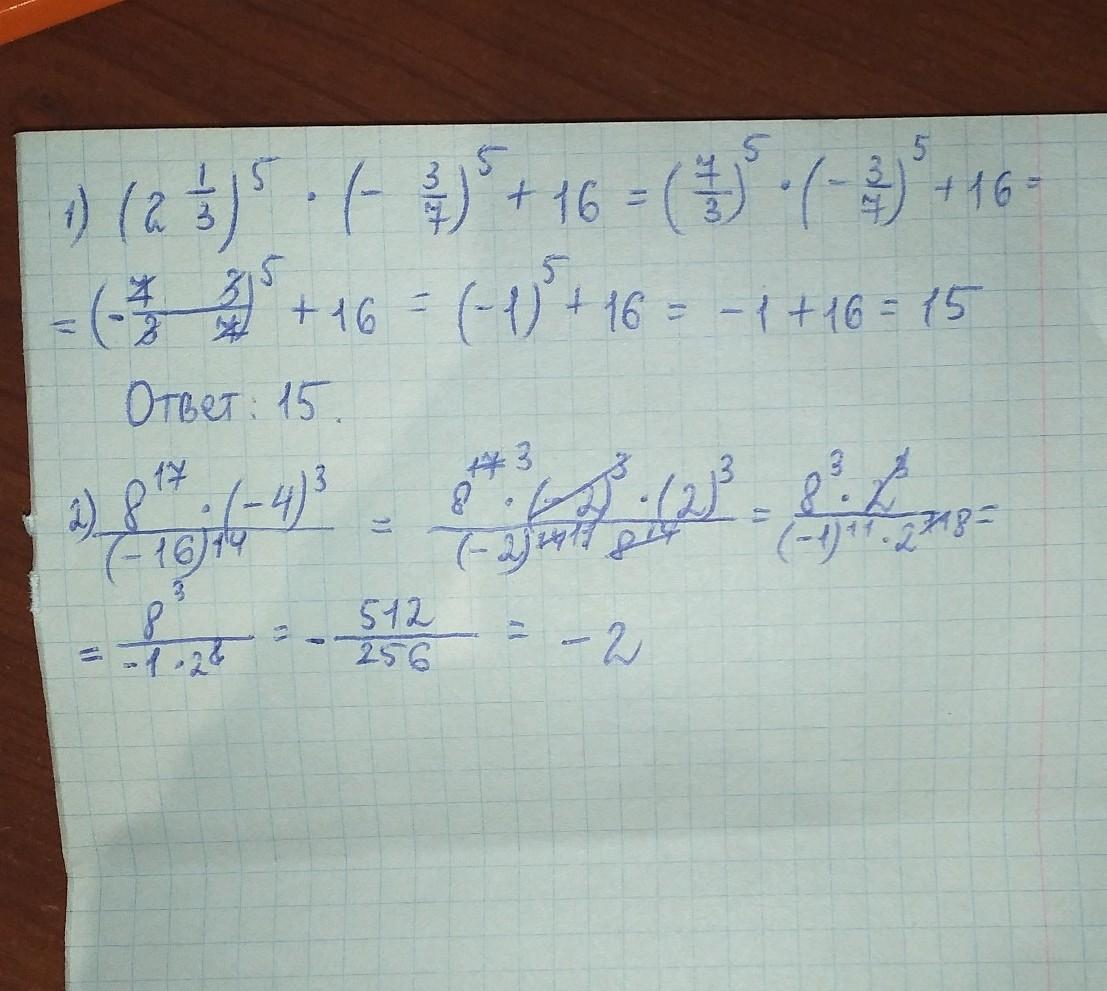 1) (2 1/3)^5 · (- 3/7)^5 + 16 = (7/3)^5 · (- 3/7)^5 + 16 =
= (- 7 3 / 3 7)^5 + 16 = (-1)^5 + 16 = -1 + 16 = 15
Ответ: 15.
2) 8^17 · (-4)^3 / (-16)^14 = 8^17 3 · (-2)^3 · (2)^3 / (-2)^14 11 8^14 = 8^3 · 2^3 / (-1)^11 · 2^11 8 =
= 8^3 / -1 · 2^8 = - 512/256 = -2